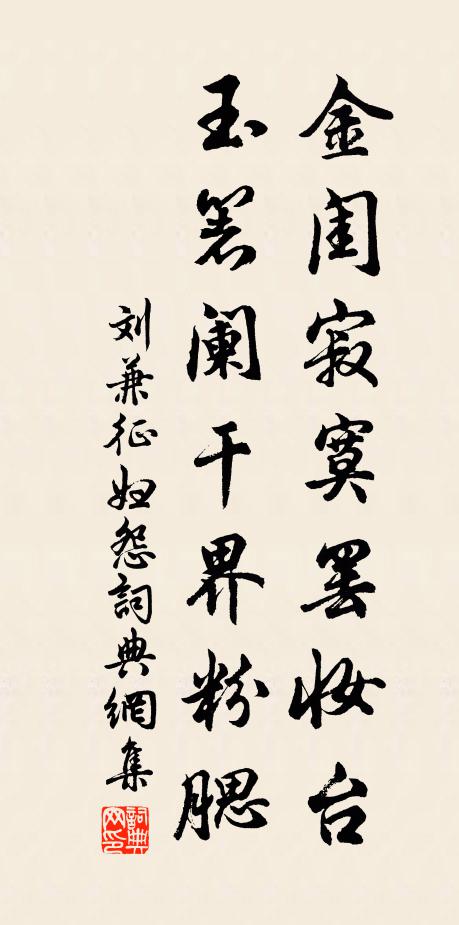 金闺寂寞罢妆台
玉箸阑干界粉腮
刘兼征妇怨詞典網集
詞典网印